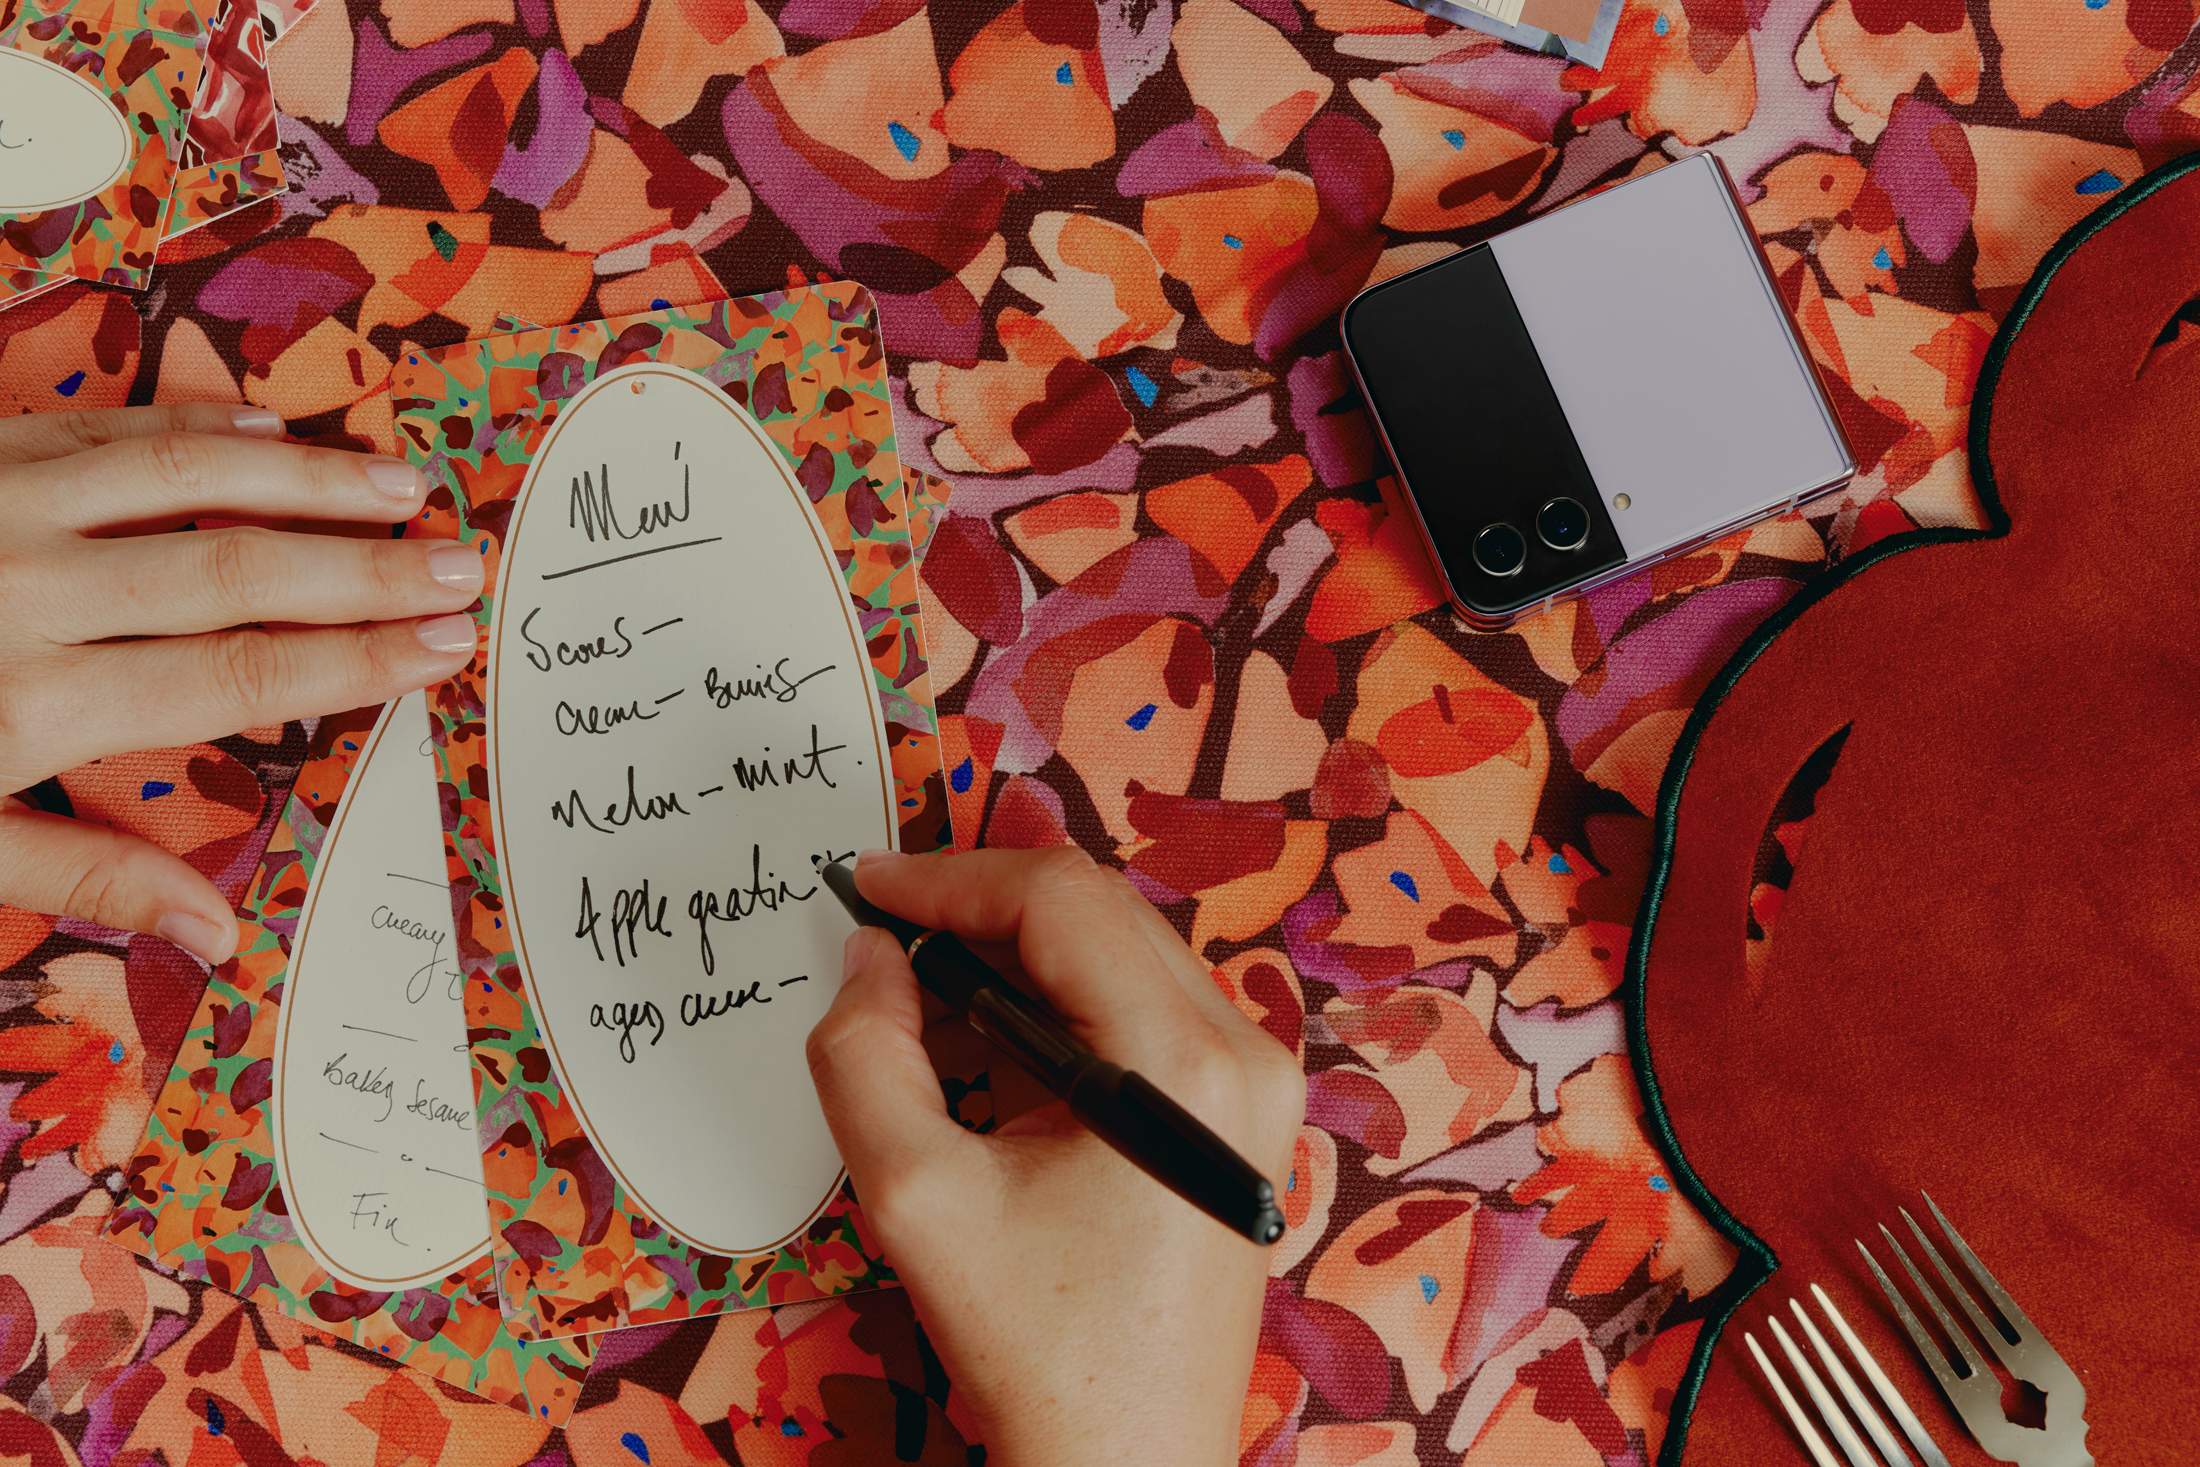 Menú
Scones –
Cream – Berries –
Melon – Mint.
Apple gratin
aged cheese –
creamy
Baked Sesame
Fin.